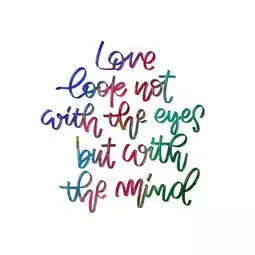 Love
look not
with the eyes
but with
the mind